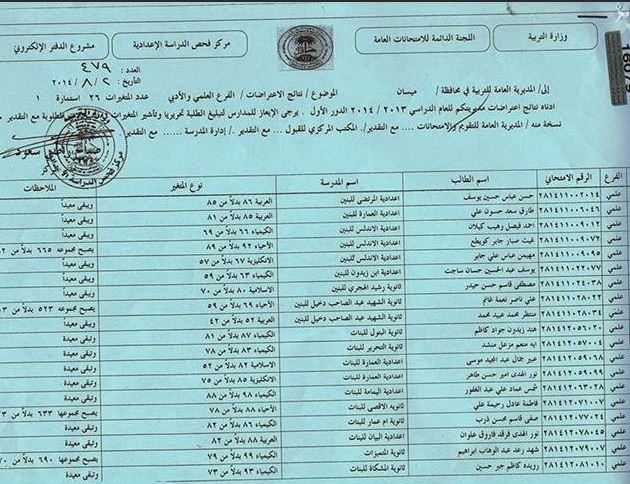 وزارة التربية
اللجنة الدائمة للامتحانات العامة
مركز فحص الدراسة الإعدادية
مشروع الدفتر الإلكتروني
العدد: ٤٧٩
التاريخ: ٢ / ٨ / ٢٠١٤
إلى/ المديرية العامة للتربية في محافظة / ميسان الموضوع / نتائج الاعتراضات / الفرع العلمي والأدبي عدد المتغيرات ٢٦ استمارة ١
ادناه نتائج اعتراضات مديريتكم للعام الدراسي ٢٠١٣ / ٢٠١٤ الدور الأول . يرجى الإيعاز للمدارس لتبليغ الطلبة تحريريا وتأشير المتغيرات مع التقدير
نسخة منه / المديرية العامة للتقويم والامتحانات ... مع التقدير/. المكتب المركزي للقبول ... مع التقدير / إدارة المدرسة ... مع التقدير
الفرع الرقم الامتحاني اسم الطالب اسم المدرسة نوع المتغير الملاحظات
علمي ٢٨١٤١١٠٠٢٠١٤ حسن عباس حسين يوسف اعدادية المرتضى للبنين العربية ٨٦ بدلاً من ٨٥ ويبقى معيداً
علمي ٢٨١٤١١٠٠٦٠٤٦ طارق سعد حسون علي اعدادية العمارة للبنين العربية ٨٥ بدلاً من ٨١ ويبقى معيداً
علمي ٢٨١٤١١٠٠٩٠٠٦ احمد فيصل وهيب كيلان اعدادية الاندلس للبنين الكيمياء ٦٦ بدلاً من ٦٩ ويبقى معيداً
علمي ٢٨١٤١١٠٠٩٠٧٢ غيث صبار جابر كويطع اعدادية الاندلس للبنين الأحياء ٩٢ بدلاً من ٨٩ يصبح مجموعه ٦٦٥ بدلاً من
علمي ٢٨١٤١١٠٠٩٠٩٥ مهيمن عباس علي جابر اعدادية الاندلس للبنين الانكليزية ٦٧ بدلاً من ٥٧ ويبقى معيداً
علمي ٢٨١٤١١٠٢٢٠٧٧ يوسف عبد الحسين حسان ساجت اعدادية ابن زيدون للبنين الكيمياء ٦٣ بدلاً من ٥٩ ويبقى معيداً
علمي ٢٨١٤١١٠٢٤٠٣٨ مصطفى قاسم حسن حيدر ثانوية رشيد الهجري للبنين الاسلامية ٨٠ بدلاً من ٧٠ ويبقى معيداً
علمي ٢٨١٤١١٠٢٨٠٢٢ علي ناصر نعمة غانم ثانوية الشهيد عبد الصاحب دخيل للبنين الأحياء ٦٩ بدلاً من ٥٩ يصبح مجموعه ٥٢٣ بدلاً من
علمي ٢٨١٤١١٠٢٨٠٣٤ منتظر محمد عبيد محمد ثانوية الشهيد عبد الصاحب دخيل للبنين العربية ٥٢ بدلاً من ٤٢ ويبقى معيداً
علمي ٢٨١٤١٢٠٥٦٠٢٠ هند زيدون جواد كاظم ثانوية البتول للبنات الكيمياء ٨٧ بدلاً من ٨١ وتبقى معيدة
علمي ٢٨١٤١٢٠٥٧٠٠٤ ايه منعم مزعل منشد ثانوية التحرير للبنات الكيمياء ٨٣ بدلاً من ٧٨ وتبقى معيدة
علمي ٢٨١٤١٢٠٥٩٠٦٨ عبير جمال عبد المجيد موسى اعدادية العمارة للبنات الاسلامية ٨٢ بدلاً من ٥٢ وتبقى معيدة
علمي ٢٨١٤١٢٠٥٩٠٩٩ نور الهدى امير حسن طاهر اعدادية العمارة للبنات الانكليزية ٨٥ بدلاً من ٧٥ وتبقى معيدة
علمي ٢٨١٤١٢٠٦٣٠٢٨ شمس عماد علي عبد الغفور اعدادية اليمامة للبنات الكيمياء ٩٨ بدلاً من ٨٨ وتبقى معيدة
علمي ٢٨١٤١٢٠٧١٠٠٧ فاطمة عادل رحيمة علي ثانوية الاقصى للبنات الأحياء ٨٨ بدلاً من ٧٨ يصبح مجموعها ٦٣٣ بدلاً من
علمي ٢٨١٤١٢٠٧٧٠٢٤ صفى قاسم محسن ذرب ثانوية ام عمار للبنات الكيمياء ٨٨ بدلاً من ٨٢ وتبقى معيدة
علمي ٢٨١٤١٢٠٧٨٠٤٥ نور الهدى فرقد فاروق علوان اعدادية البيان للبنات العربية ٨٨ بدلاً من ٨٢ وتبقى معيدة
علمي ٢٨١٤١٢٠٧٩٠٠٧ شهد رعد عبد الوهاب ابراهيم ثانوية المتميزات الكيمياء ٩٩ بدلاً من ٧٩ يصبح مجموعها ٦٩٠ بدلاً من
علمي ٢٨١٤١٢٠٨١٠١٠ رويده كاظم جبر حسين ثانوية المشكاة للبنات الكيمياء ٩٣ بدلاً من ٧٣ وتبقى معيدة